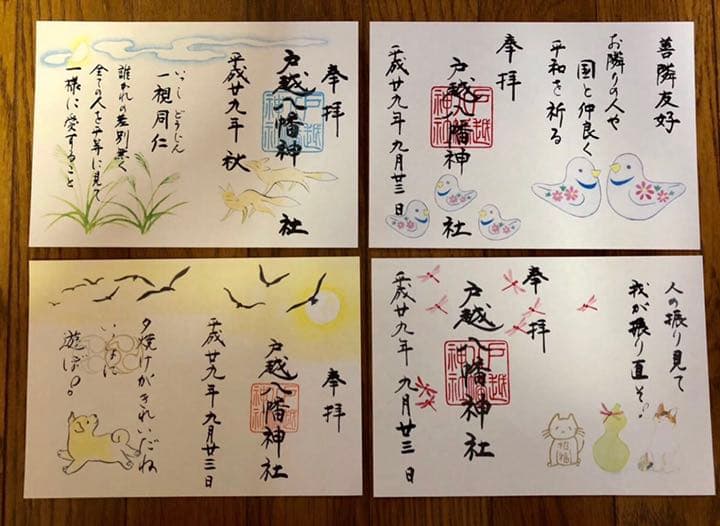 奉拝
戸越八幡神社
戸越八幡神社
平成廿九年 秋
いっし どうじん
一視同仁
誰かれの差別無く
全ての人を平等に見て
一様に愛すること
善隣友好
お隣りの人や
国と仲良く
平和を祈る
奉拝
戸越八幡神社
戸越八幡神社
平成廿九年 九月廿三日
奉拝
戸越八幡神社
戸越八幡神社
平成廿九年 九月廿三日
夕焼けがきれいだね
遊ぼう。
人の振り見て
我が振り直そう
招福
奉拝
戸越八幡神社
戸越八幡神社
平成廿九年 九月廿三日